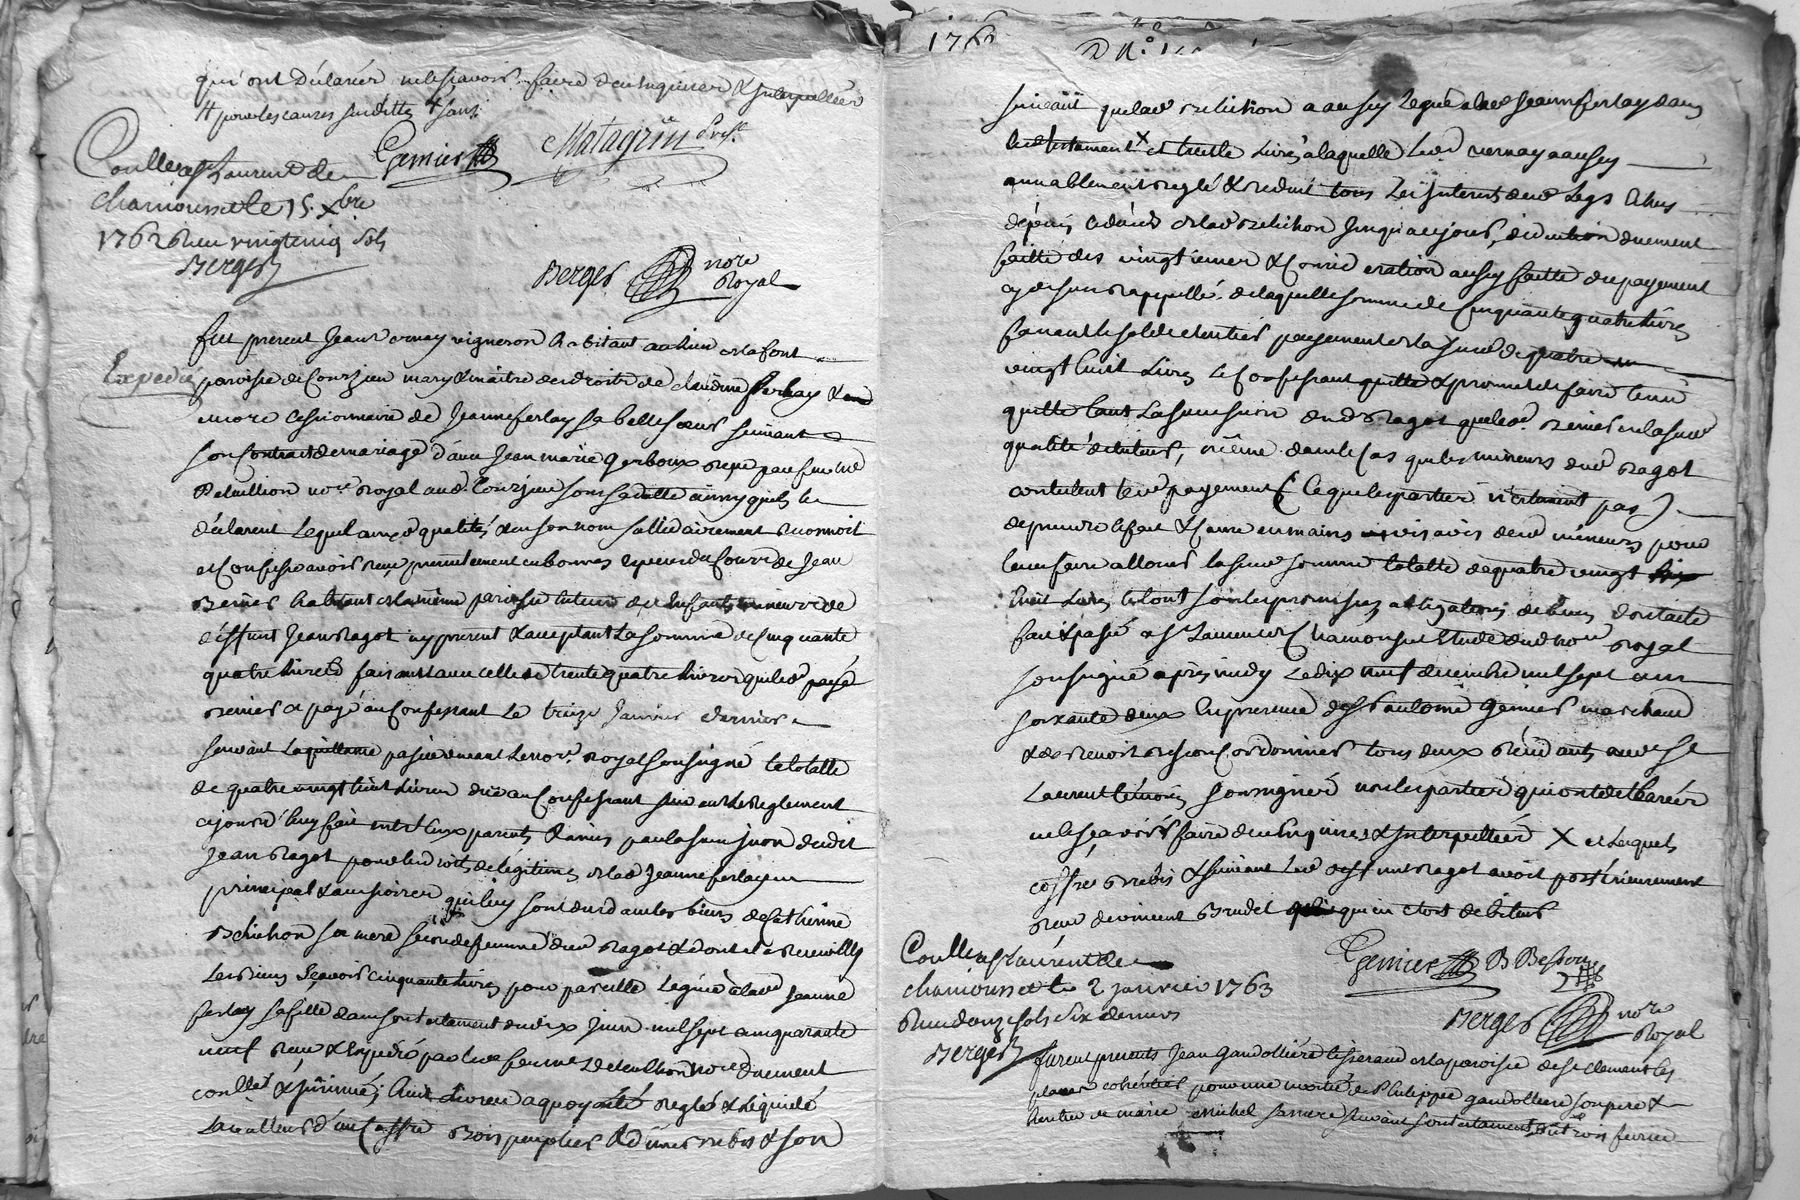 qui ont déclarér ne le sçavoir faire de ce enquis et interpellés
pour les causes susdittes
Coullé a St Laurent de
chamousset le 15. Xbre
1762 Reçu vingt cinq sols
Berger
Gemier Matagrin
Berger nore
Royal
Expedié
fut present Jean Vernay vigneron habitant au lieu de la font
paroisse de Courzieu mary & maitre des droits de claudine ferlay &
encore cessionnaire de Jeanne ferlay sa belle soeur suivant
son contract de mariage d'avec Jean marie Gerboux reçu par feu me
notre Royal aud Courzieu sous sa datte ainsy qu'ils le
déclarent Lequel auxd qualités & en son nom sollidairement reconnoit
et Confesse avoir reçu presentement en bonnes especes du cours de Jean
Benier habitant de la même paroisse tuteur des Enfants mineurs de
déffunt Jean Ragot icy present & acceptant La somme de Cinquante
quatre livres faisant avec celle de trente quatre livres que led
Benier a payé au Confessant Le treize Janvier dernier
suivant La quittance passée devant Le nore Royal soussigné la totalle
de quatre vingt huit Livres düe au Confessant suivant Le Reglement
cejourd'huy fait entre Eux parents & amis par la succession dudit
Jean Ragot pour les droits de légitime de lad Jeanne ferlay en
principal & accessoires qui luy sont dus dans les biens de Catherine
Relichon sa mere seconde femme dud Ragot & dont il a recueilly
Les biens Sçavoir cinquante livres pour pareille Leguée a lad Jeanne
ferlay sa fille dans son testament du dix Juin mil sept cent quarante
neuf Reçu & Expedié par led feu me nore duement
conllé & insinué; huit Livres a quoy a été reglé & Liquidé
La valleur d'un Coffre Bois peuplier & d'une Brebis & son
1762
suivant que lad Relichon a aussy Legué a lad Jeanne ferlay dans
led testament X et trente Livres a laquelle led vernay a aussy
amiablement reglé & reduit tous Les Interets dud Legs Echus
depuis Le déceds de lad Relichon Jusqu'aujourd, déduction duement
faitte des vingtiemes & Consideration aussy faitte du payement
cy dessus rappellé. de laquelle somme de Cinquante quatre livres
faisant le solde et entier payement de la susd de quatre
vingt huit Livres le Confessant quitte & promet de faire tenir
quitte tant La succession dud Ragot que led Benier en la susd
qualité de tuteur, même dans le cas que les mineurs dud Ragot
contestent led payement (Ce que les parties n'estiment pas)
de prendre le fait & cause en mains vis avis desd mineurs pour
leur faire allouer la susd somme totalle de quatre vingt
huit Livres le tout sous les promesses obligations de biens dont acte
fait & passé a St Laurent de Chamousset Etude dud nore Royal
soussigné après midy Le dix neuf décembre mil sept cent
soixante deux En presence de Sr antoine Gemier marchand
& de Benoit Besson Cordonnier tous deux résidants aud St
Laurent témoins soussignés non les parties qui ont declarér
ne le sçavoir faire de ce Enquises & Interpellées X et Lesquels
coffre Brebis & suivant Led deffunt Ragot avoit postérieurement
reçu de vincent Brudet qui en étoit debiteur
Coullé a St Laurent de
chamousset le 2 janvier 1763
Reçu douze sols six deniers
Berger
Gemier B Besson
Berger nore
Royal
furent presents Jean Gandolliere tisserand de la paroisse de St Clement les
places cohéritier pour une moitié de Philippe Gandolliere son pere &
heritier de marie michel sa mere suivant son testament du trois fevrier